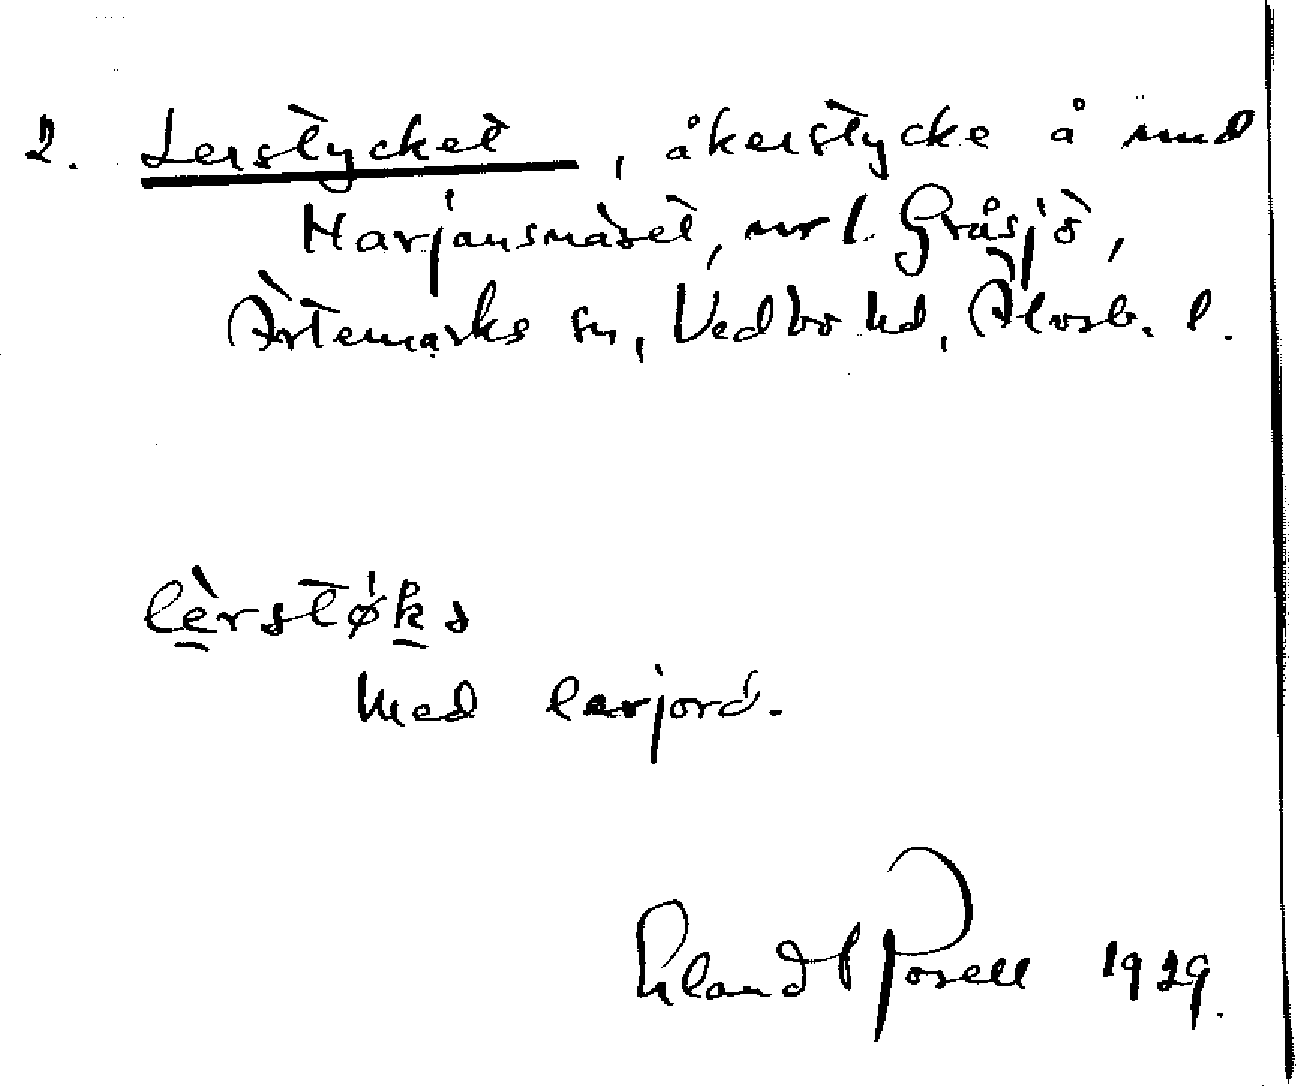 2. Lerstycket, åkerstycke å und
Marjansnäset, nr 1. Gråsjö,
Ärtemarks sn, Vedbo hd, Älvsb. l.
lèrstøks
Med lerjord.
Erland Rosell 1929.